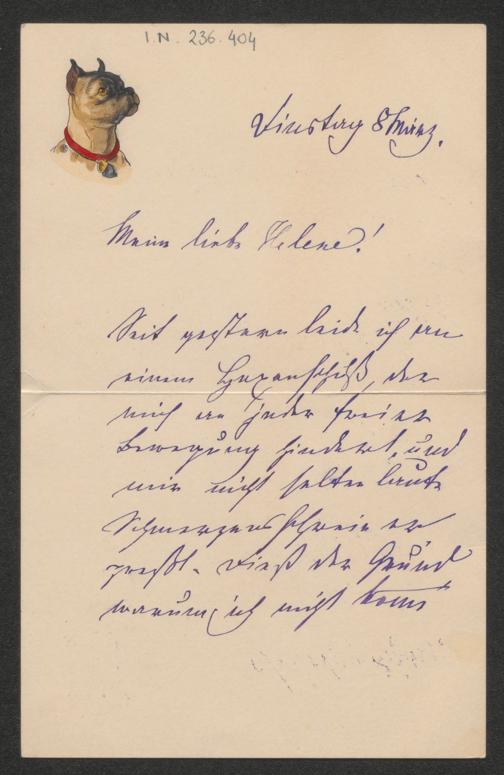 I.N. 236.404
Dinstag 8 März.
Meine liebe Helene!
Seit gestern leide ich an
einem Hexenschuß, der
mich an jeder freien
Bewegung hindert, und
mir nicht selten laute
Schmerzensschreie er
preßt. Dieß der Grund
warum ich nicht kome